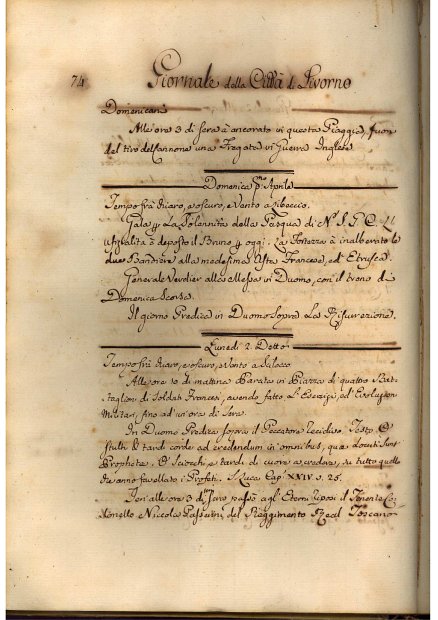 74 Giornale della Città di Livorno
Domenicani
Alle ore 3 di sera à ancorato in questa Piaggia, fuor
del tiro del Cannone una Fregata di Guerra Inglese
Domenica Pmo Aprile
Tempo frà chiaro, e oscuro, e Vento a Libeccio.
Gala p. La Solennità della Pasqua di N. S. G. C. Li
è deposto il Bruno p. oggi. La Fortezza à inalberato le
due Bandiere alla medesima Asta Francese, ed Etrusca.
Generale Verdier alla Messa in Duomo, con il trono di
Domenica Scorsa.
Il giorno Predica in Duomo Sopra La Resurrezione.
Lunedi 2. Detto
Tempo frà chiaro, e oscuro, e Vento a Scilocco
Alle ore 10 di mattina Parata in Piazza di quattro Bat-
taglioni di Soldati Francesi, avendo fatto L'Esercizj, ed Evoluzion
Militari, fino ad un'ora di Sera.
In Duomo Predica sopra il Peccatore Recidivo. Testo O
stulti & tardi corde ad credendum in omnibus, quae Locuti Sunt
Prophetae. O Sciocchi, e tardi di cuore a credere, su tutto quello
che anno favellato i Profeti. S. Luca Cap. XXIV v. 25.
Jeri alle ore 3 di Sera passò agl'Eterni riposi il Tenente Co-
lonello Niccola Passerini del Reggimento Real Toscano